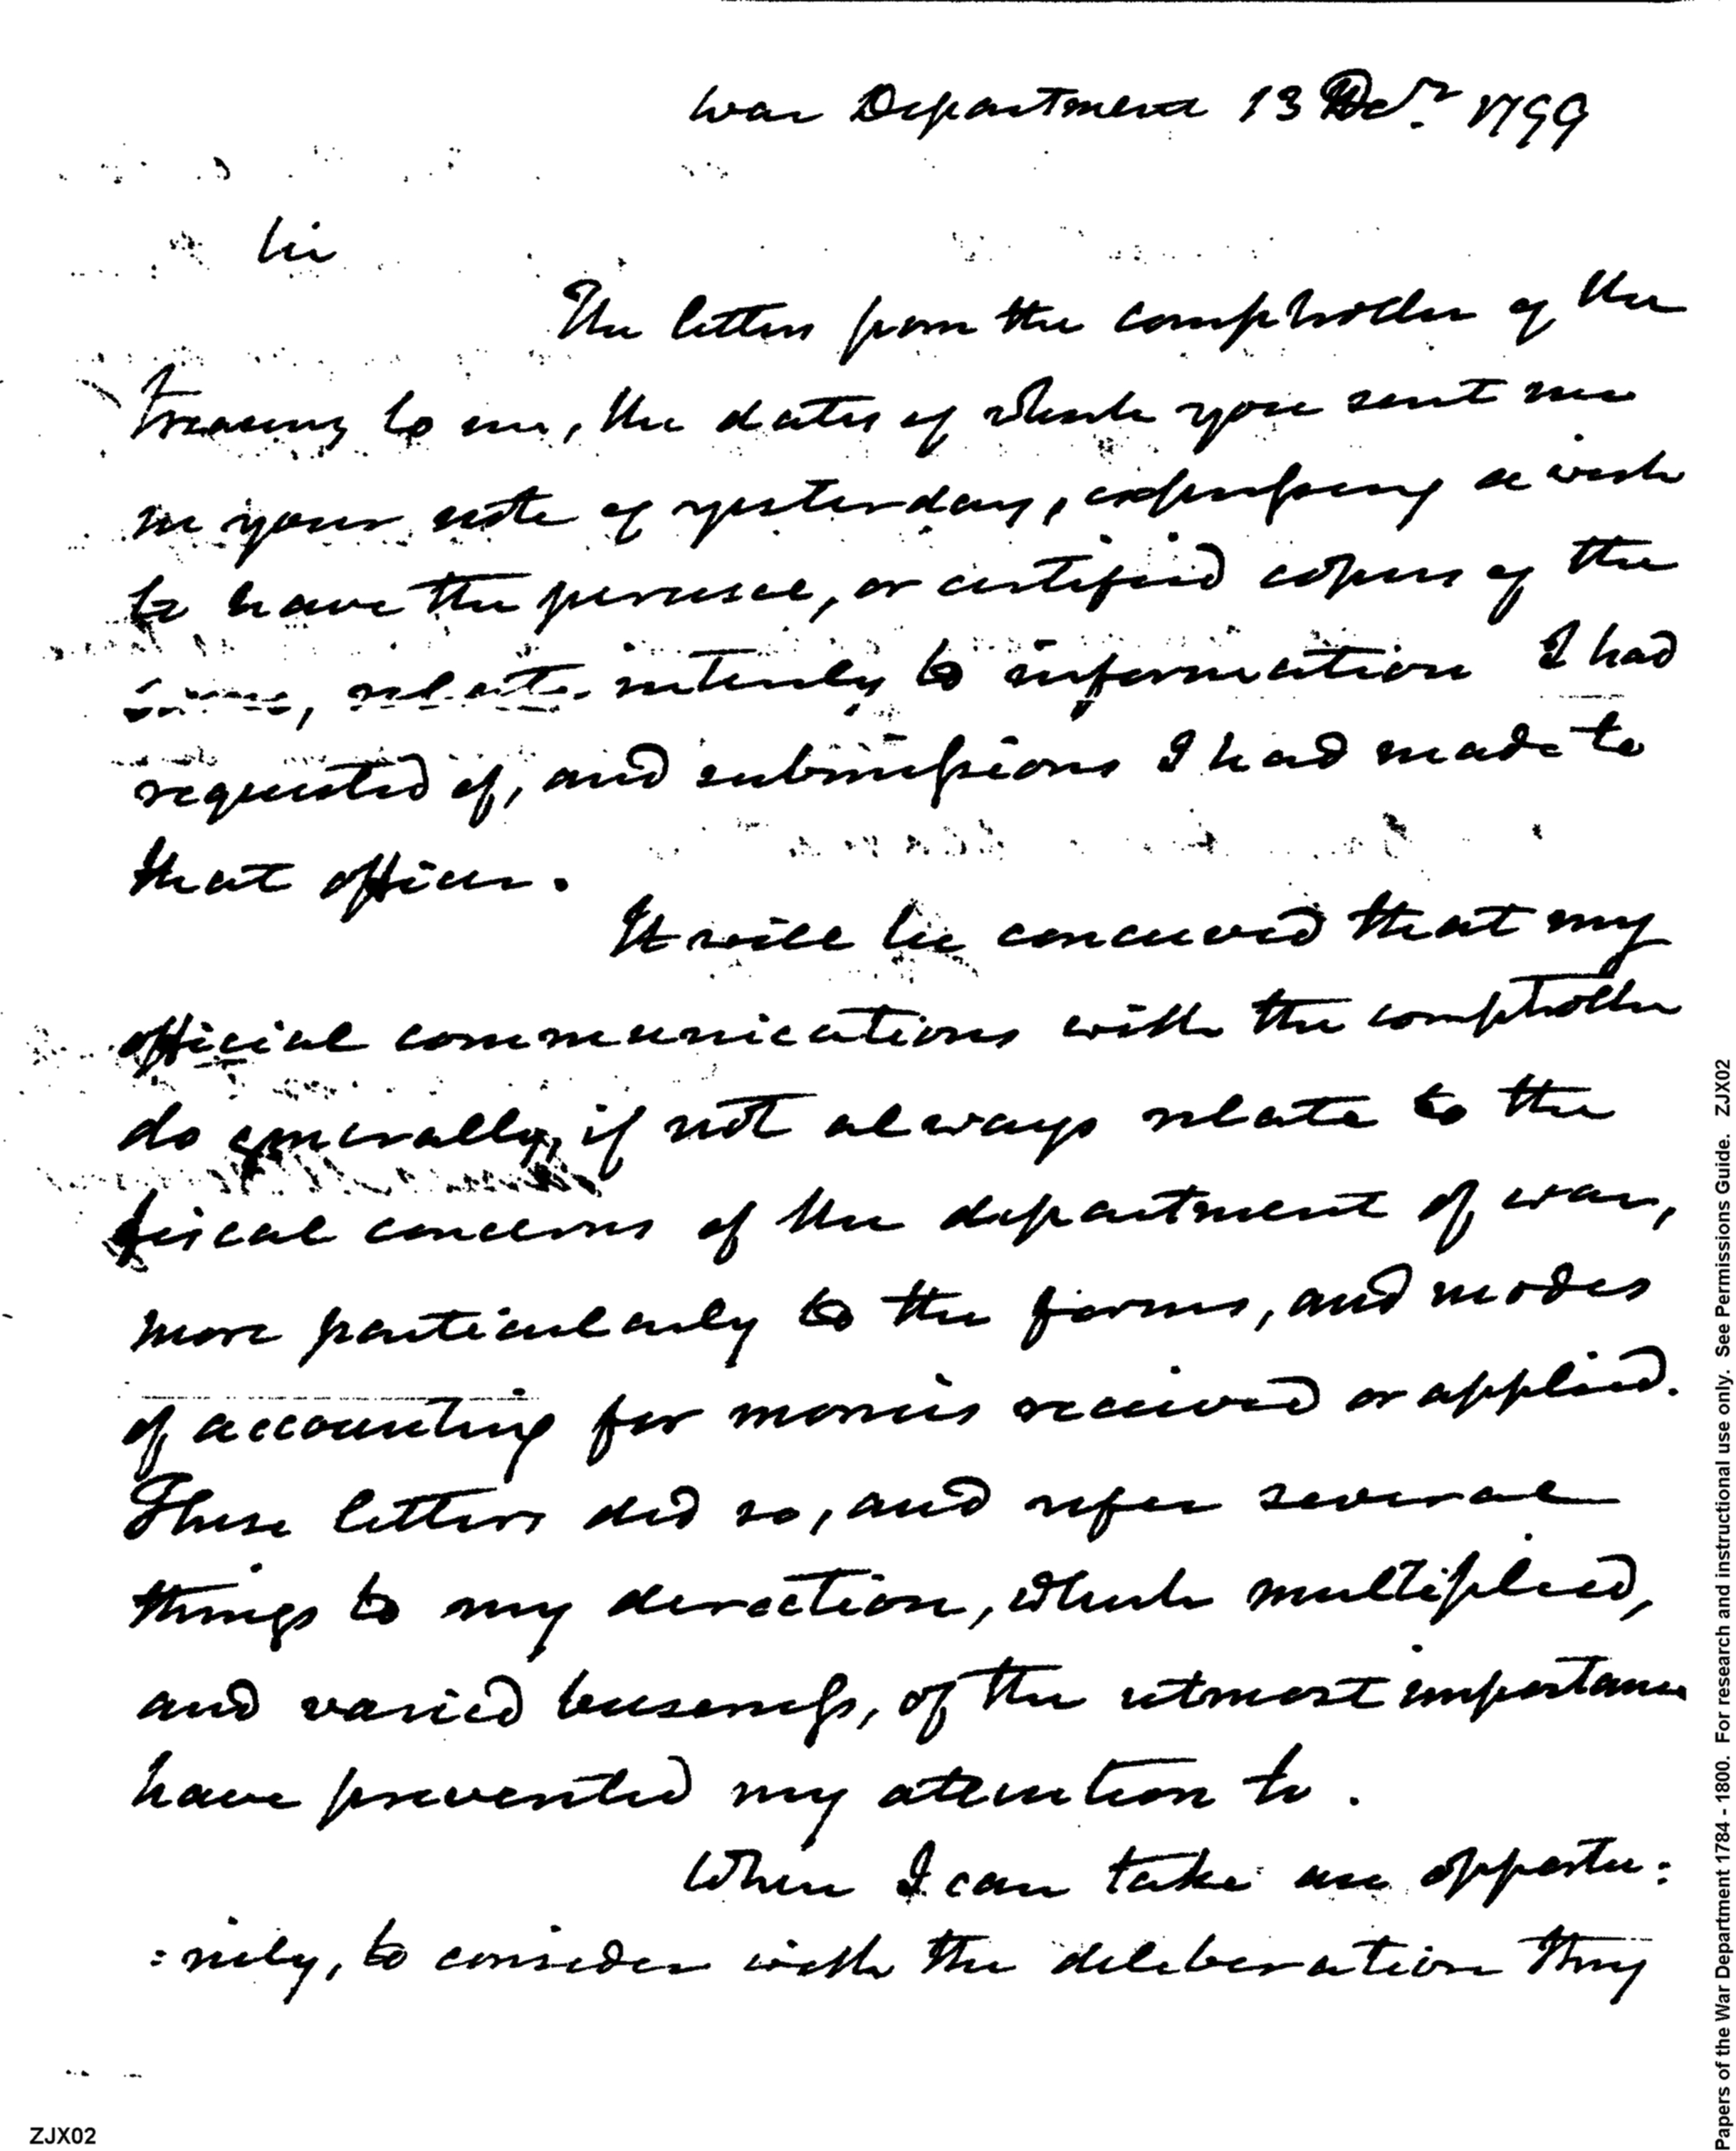 War Department 13 Decr. 1799
Sir
The letters from the comptroller of the
Treasury to me, the dates of which you sent me
in your note of yesterday, expressing a wish
to have the perusal, or certified copies of the
same, relate entirely to information I had
requested of, and submissions I had made to
that officer.
It will be conceived that my
official communications with the comptroller
do generally, if not always relate to the
fiscal concerns of the department of war,
more particularly to the forms, and modes
of accounting for monies received or applied.
These letters did so, and refer several
things to my direction, which multiplied,
and varied business, of the utmost importance
have prevented my attention to.
When I can take an opportu:
:nity, to consider with the deliberation they
ZJX02
Papers of the War Department 1784 - 1800. For research and instructional use only. See Permissions Guide. ZJX02